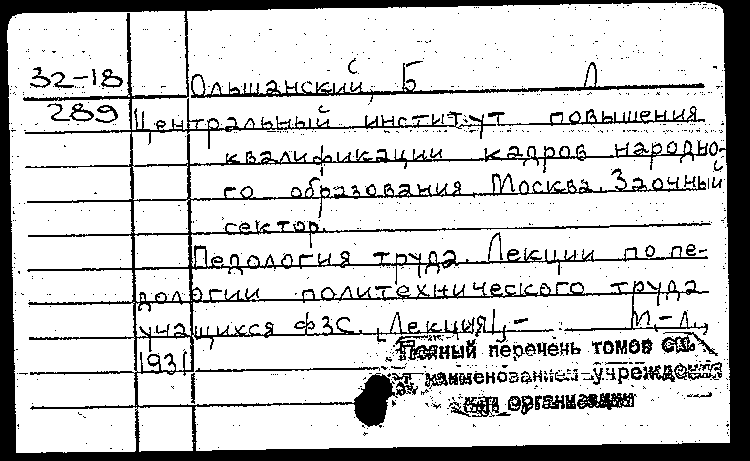 32-18 Ольшанский, Б Л
289 Центральный институт повышения
квалификации кадров народно-
го образования. Москва. Заочный
сектор.
Педология труда. Лекции по пе-
дологии политехнического труда
учащихся ФЗС. [Лекция], - М.-Л.,
1931.
Полный перечень томов см.
наименованием учреждения
или организации